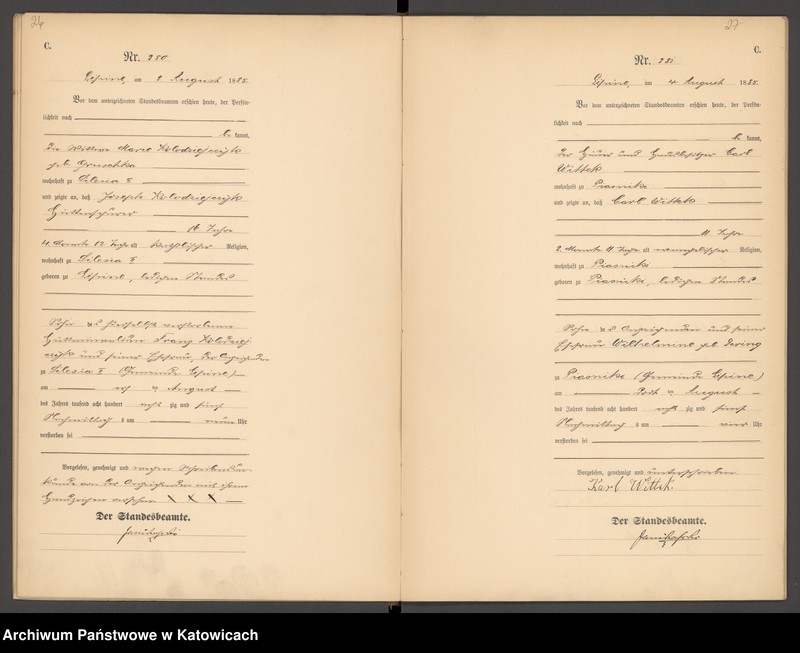 26
C.
Nr. 280.
Lipine, am 2 August 1885.
Vor dem unterzeichneten Standesbeamten erschien heute, der Persön-
lichkeit nach
be kannt,
die Wittwe Marie Kolodziejczyk
geb. Gruschka
wohnhaft zu Silesia
und zeigte an, daß Joseph Kolodziejczyk
16 Jahre
4 Monate 12 Tage alt katholischer Religion,
wohnhaft zu Silesia
geboren zu Lipine, ledigen Standes
Sohn des verstorbenen
Franz Kolodziej
czyk und seiner Ehefrau, der Anzeigenden
zu Silesia (Gemeinde Lipine)
am August
des Jahres tausend acht hundert acht zig und fünf
Nachmittags um neun Uhr
verstorben sei
Vorgelesen, genehmigt und wegen Schreibensun-
kunde von der Anzeigenden mit ihrem
Handzeichen versehen X X X
Der Standesbeamte.
27
C.
Nr. 281
Lipine, am 4 August 1885.
Vor dem unterzeichneten Standesbeamten erschien heute, der Persön-
lichkeit nach
be kannt,
der Häuer und Carl
Wittek
wohnhaft zu Piasniki
und zeigte an, daß Carl Wittek
11 Jahre
2 Monate 11 Tage alt evangelischer Religion,
wohnhaft zu Piasniki
geboren zu Piasniki, ledigen Standes
Sohn des Anzeigenden und seiner
Ehefrau Wilhelmine geb. Hering
zu Piasniki (Gemeinde Lipine)
am August
des Jahres tausend acht hundert acht zig und fünf
Nachmittags um vier Uhr
verstorben sei
Vorgelesen, genehmigt und unterschrieben
Karl Wittek.
Der Standesbeamte.
Archiwum Państwowe w Katowicach